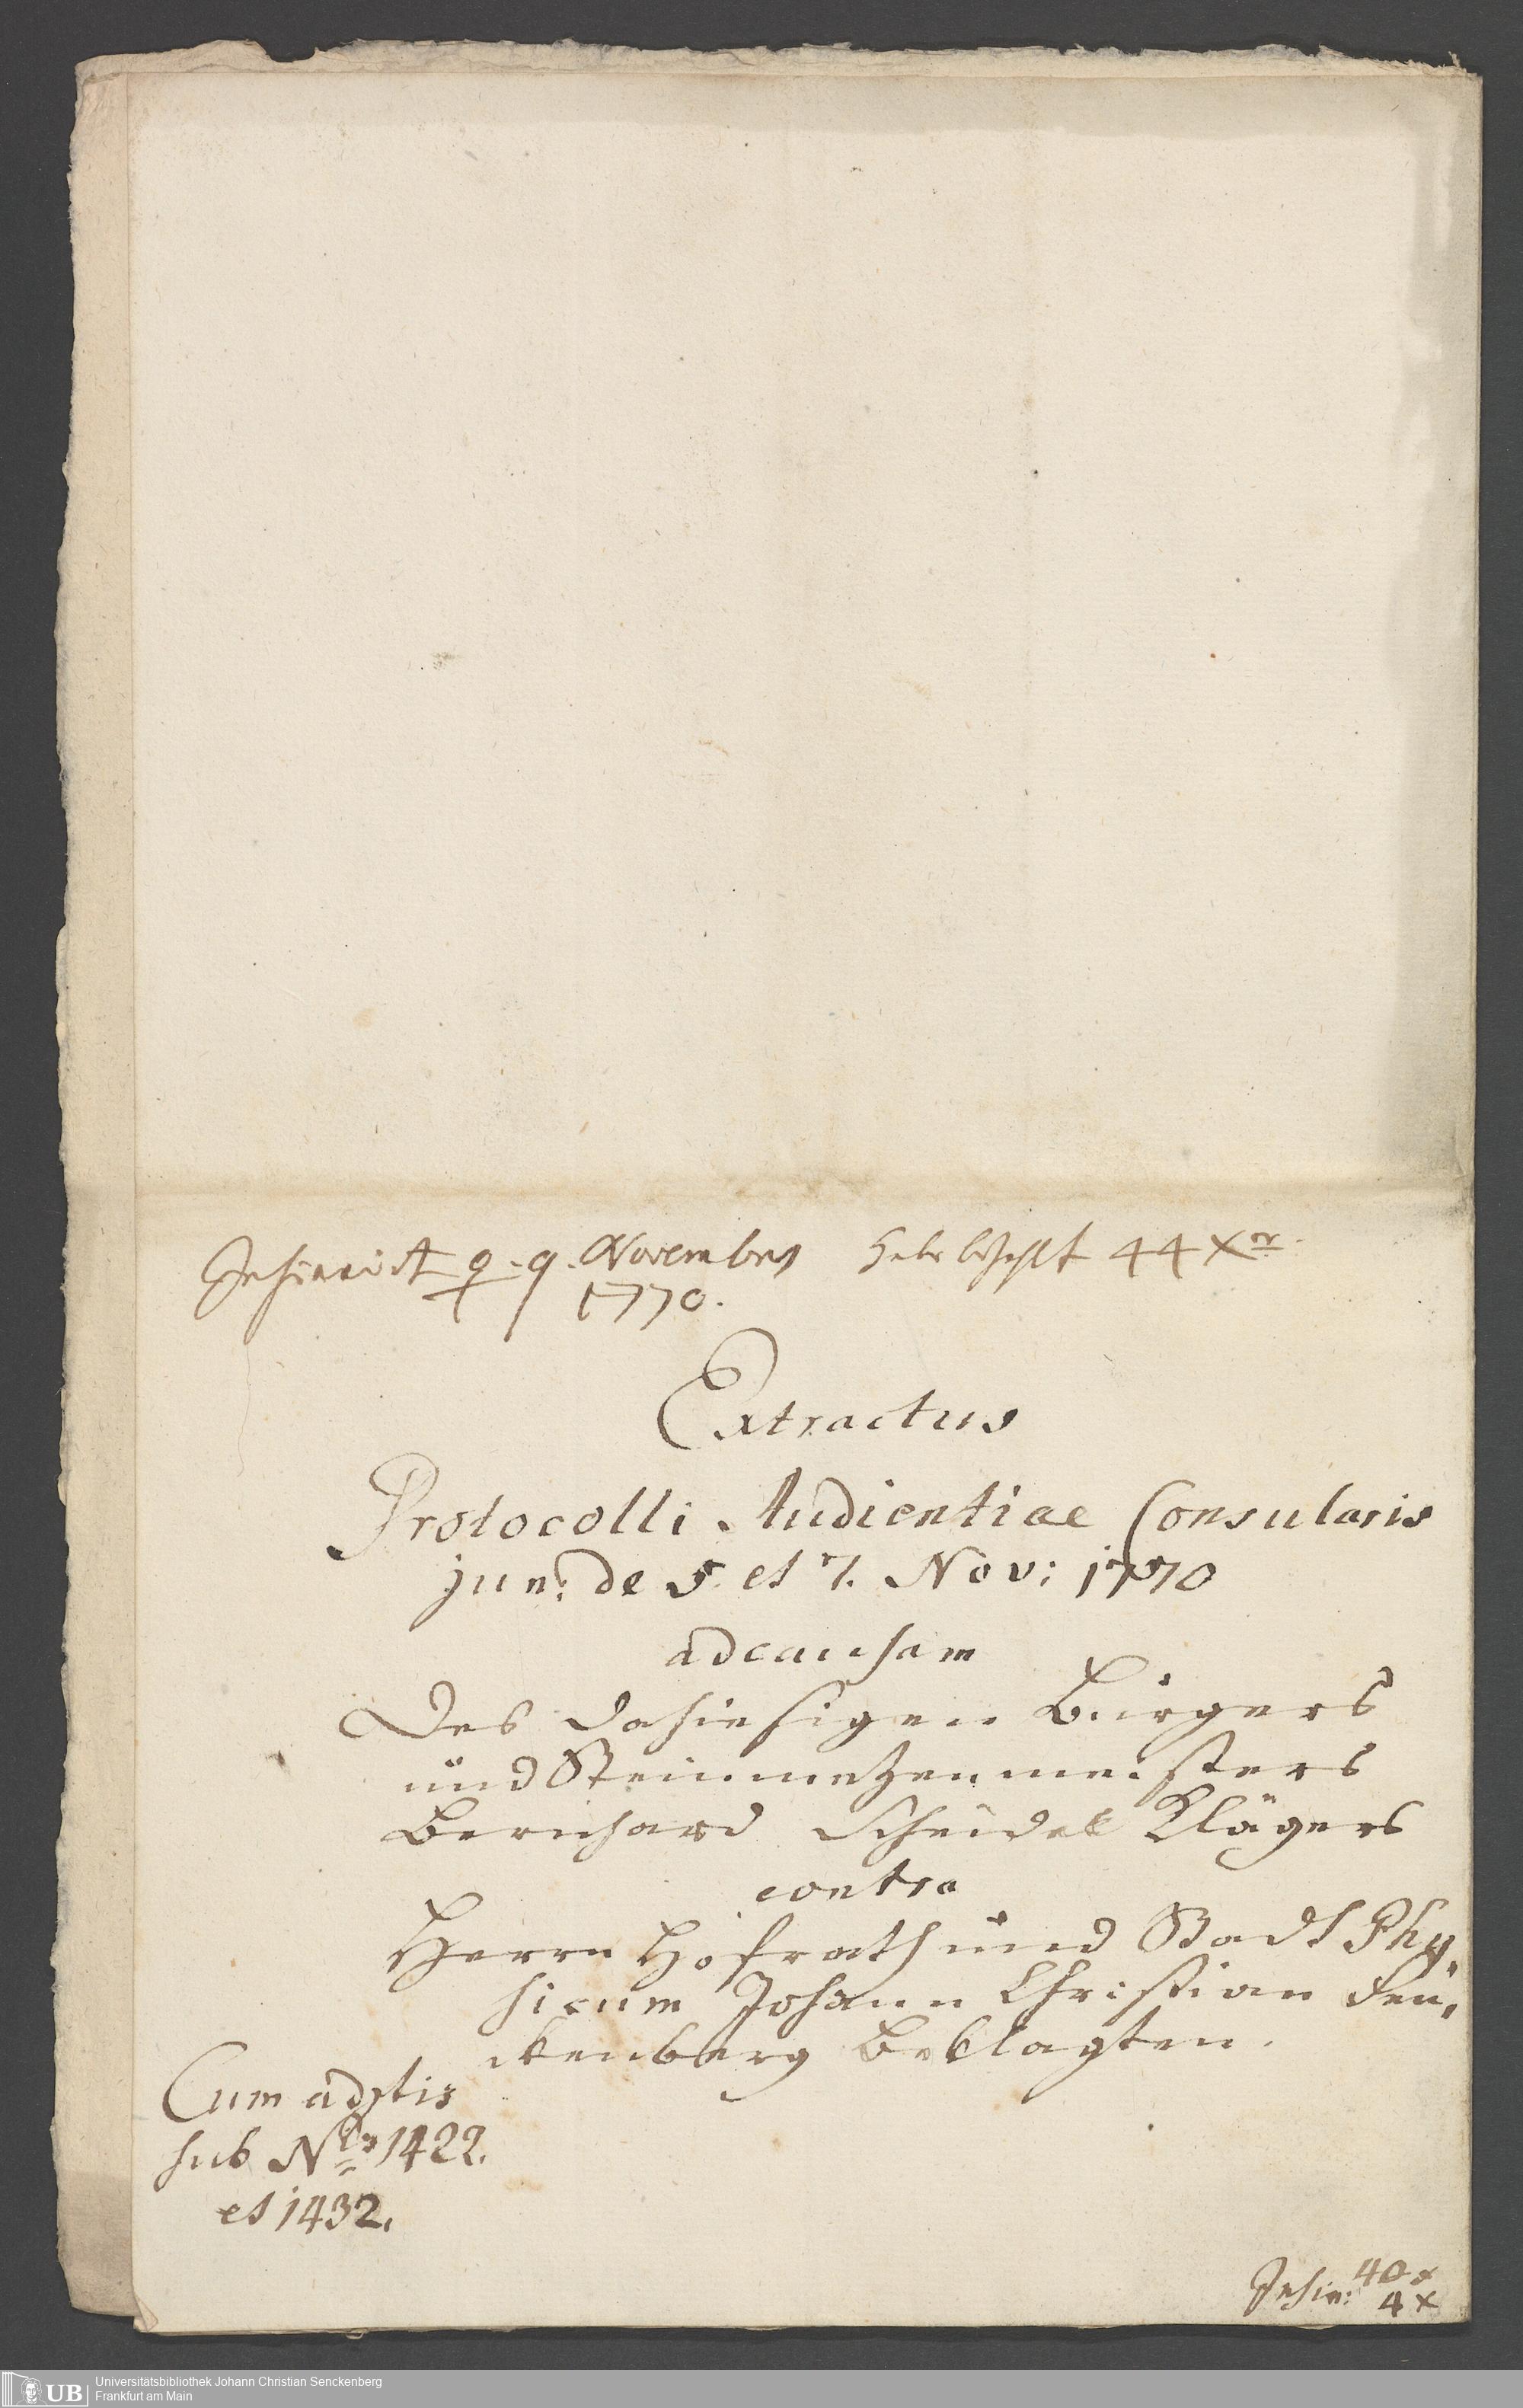 Insinuirt 9. November habe bezahlt 44 Xer.
1770.
Extractus
Protocolli Audientiae Consularis
jun: de 5. et 7. Nov: 1770
ad causam
Des dahiesigen Bürgers
und Steinmetzenmeisters
Bernhard Scheidel Klägers
contra
Herrn Hofrath und Stadt Phy-
sicum Johann Christian Sen-
ckenberg Beklagten.
Cum adjtis
sub Nris 1422.
et 1432.
40 x
Insin: 4 x
UB Universitätsbibliothek Johann Christian Senckenberg
Frankfurt am Main